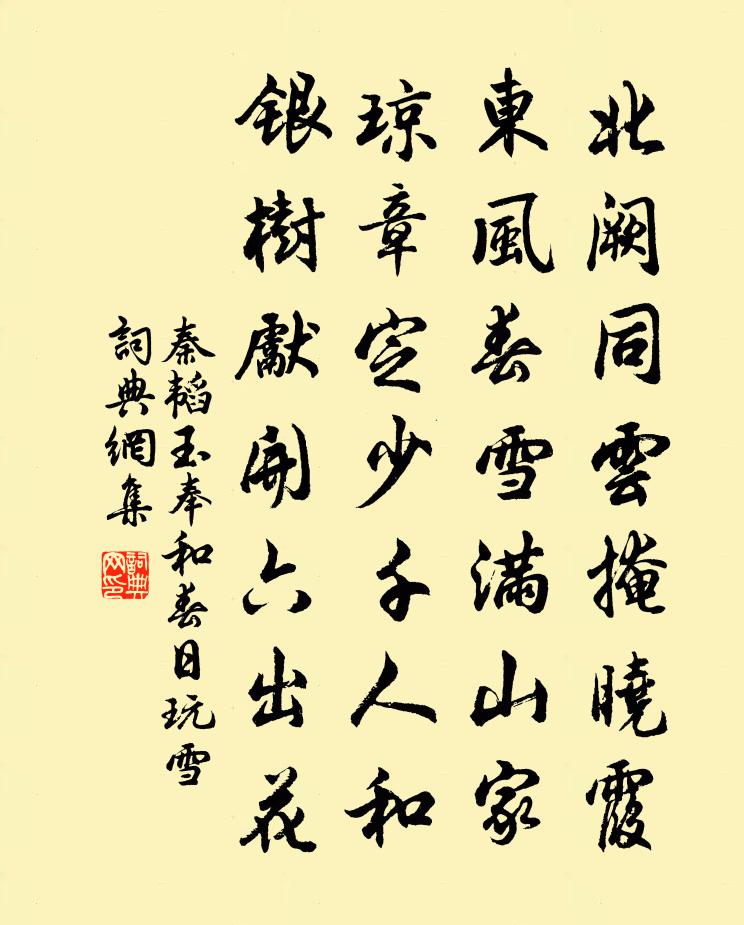 北闕同雲掩曉霞
東風春雪滿山家
琼章定少千人和
銀樹獻開六出花
秦韜玉奉和春日玩雪
詞典網集
詞典网印